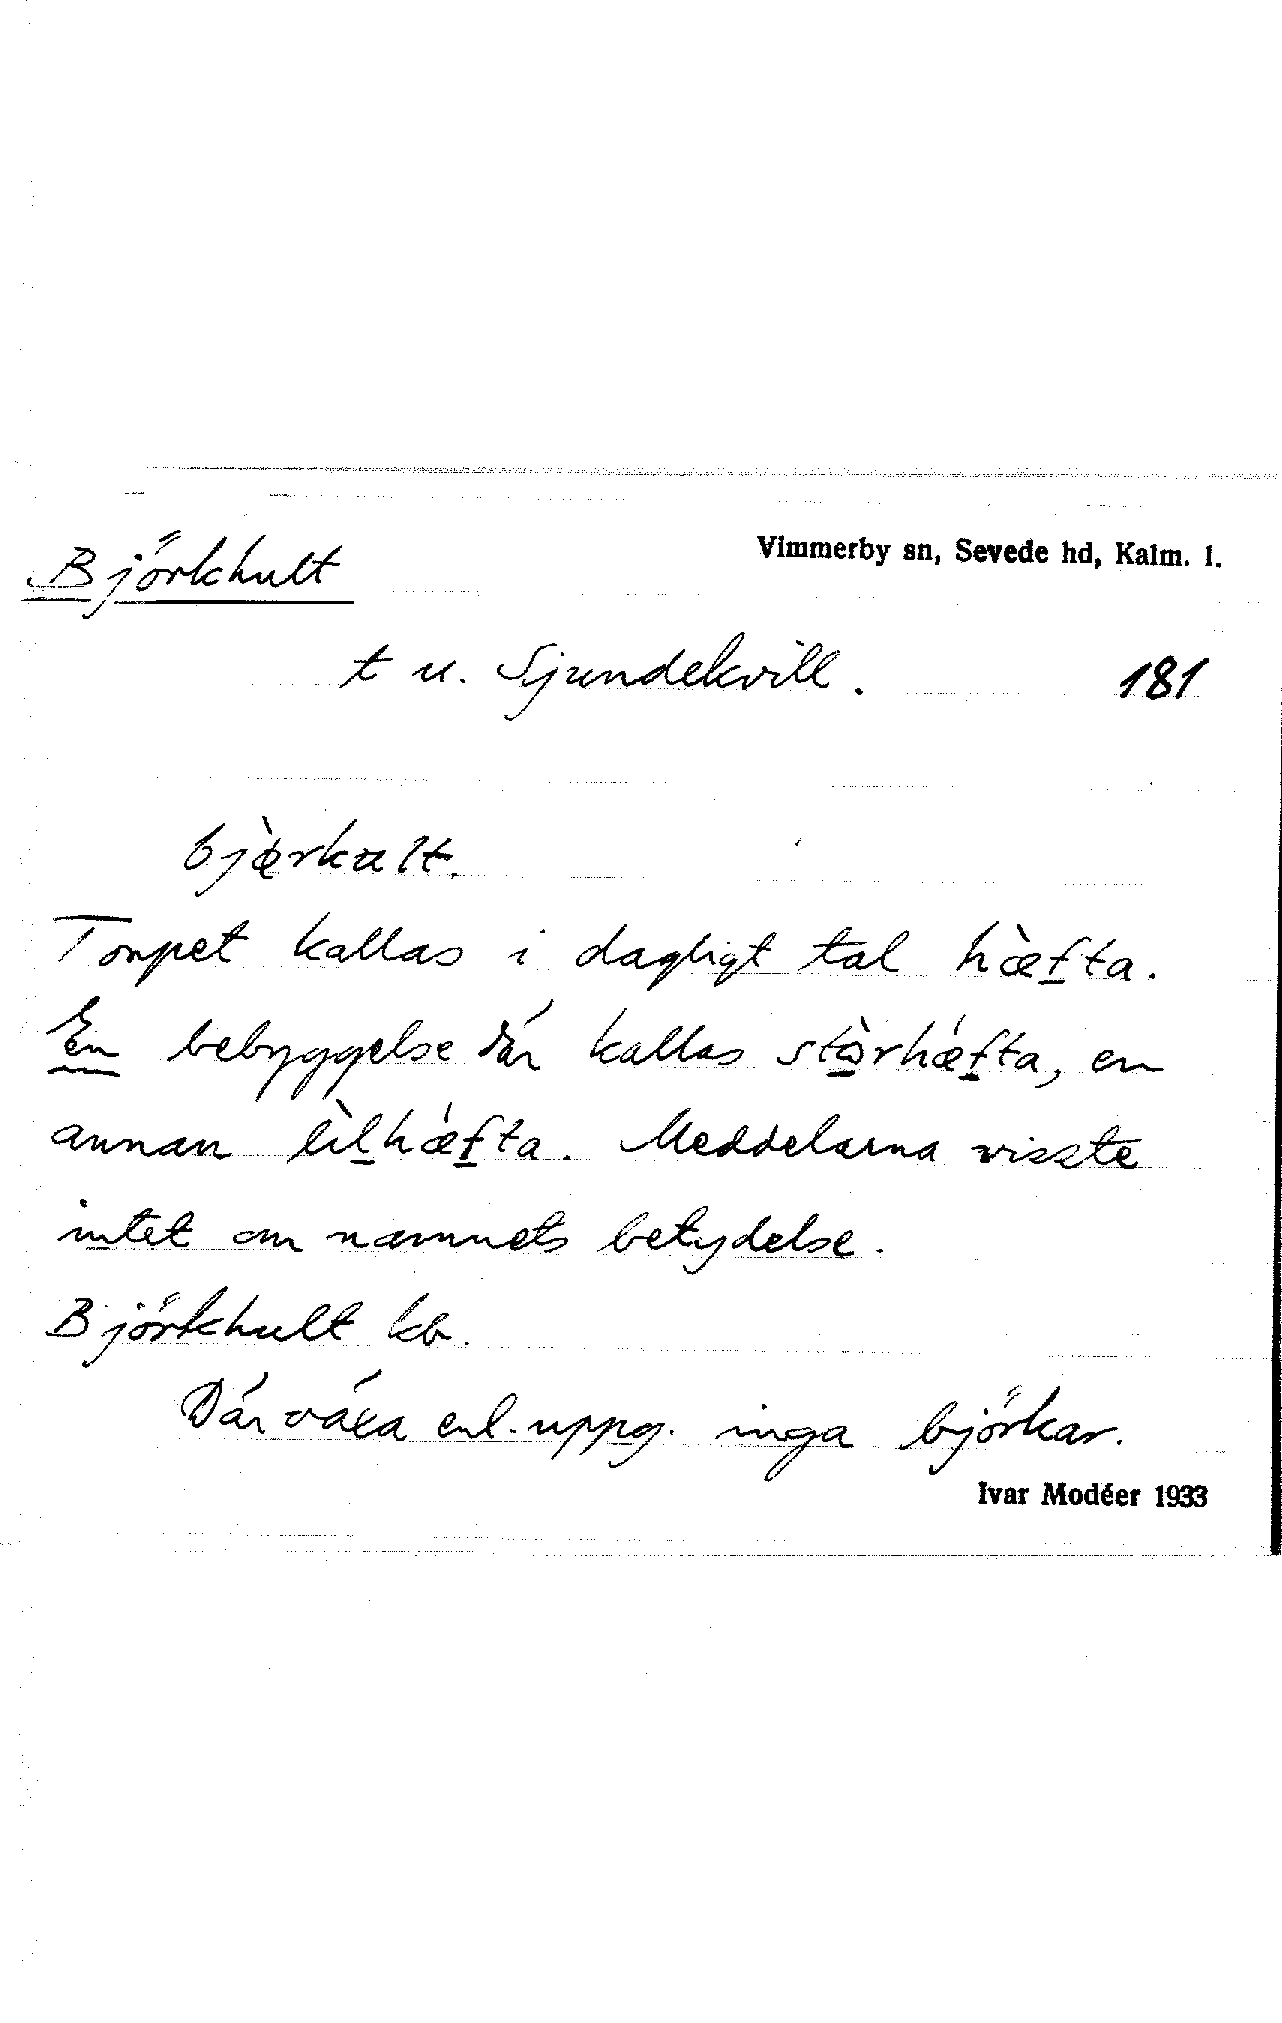 Björkhult
Vimmerby sn, Sevede hd, Kalm. l.
t u. Sjundekvill.
181
bjæ̀rkult.
Torpet kallas i dagligt tal hæ̀fta.
En bebyggelse där kallas stòrhǽfta, en
annan lìlhǽfta. Meddelarna visste
intet om namnets betydelse.
Björkhult kb.
Där växa enl. uppg. inga björkar.
Ivar Modéer 1933